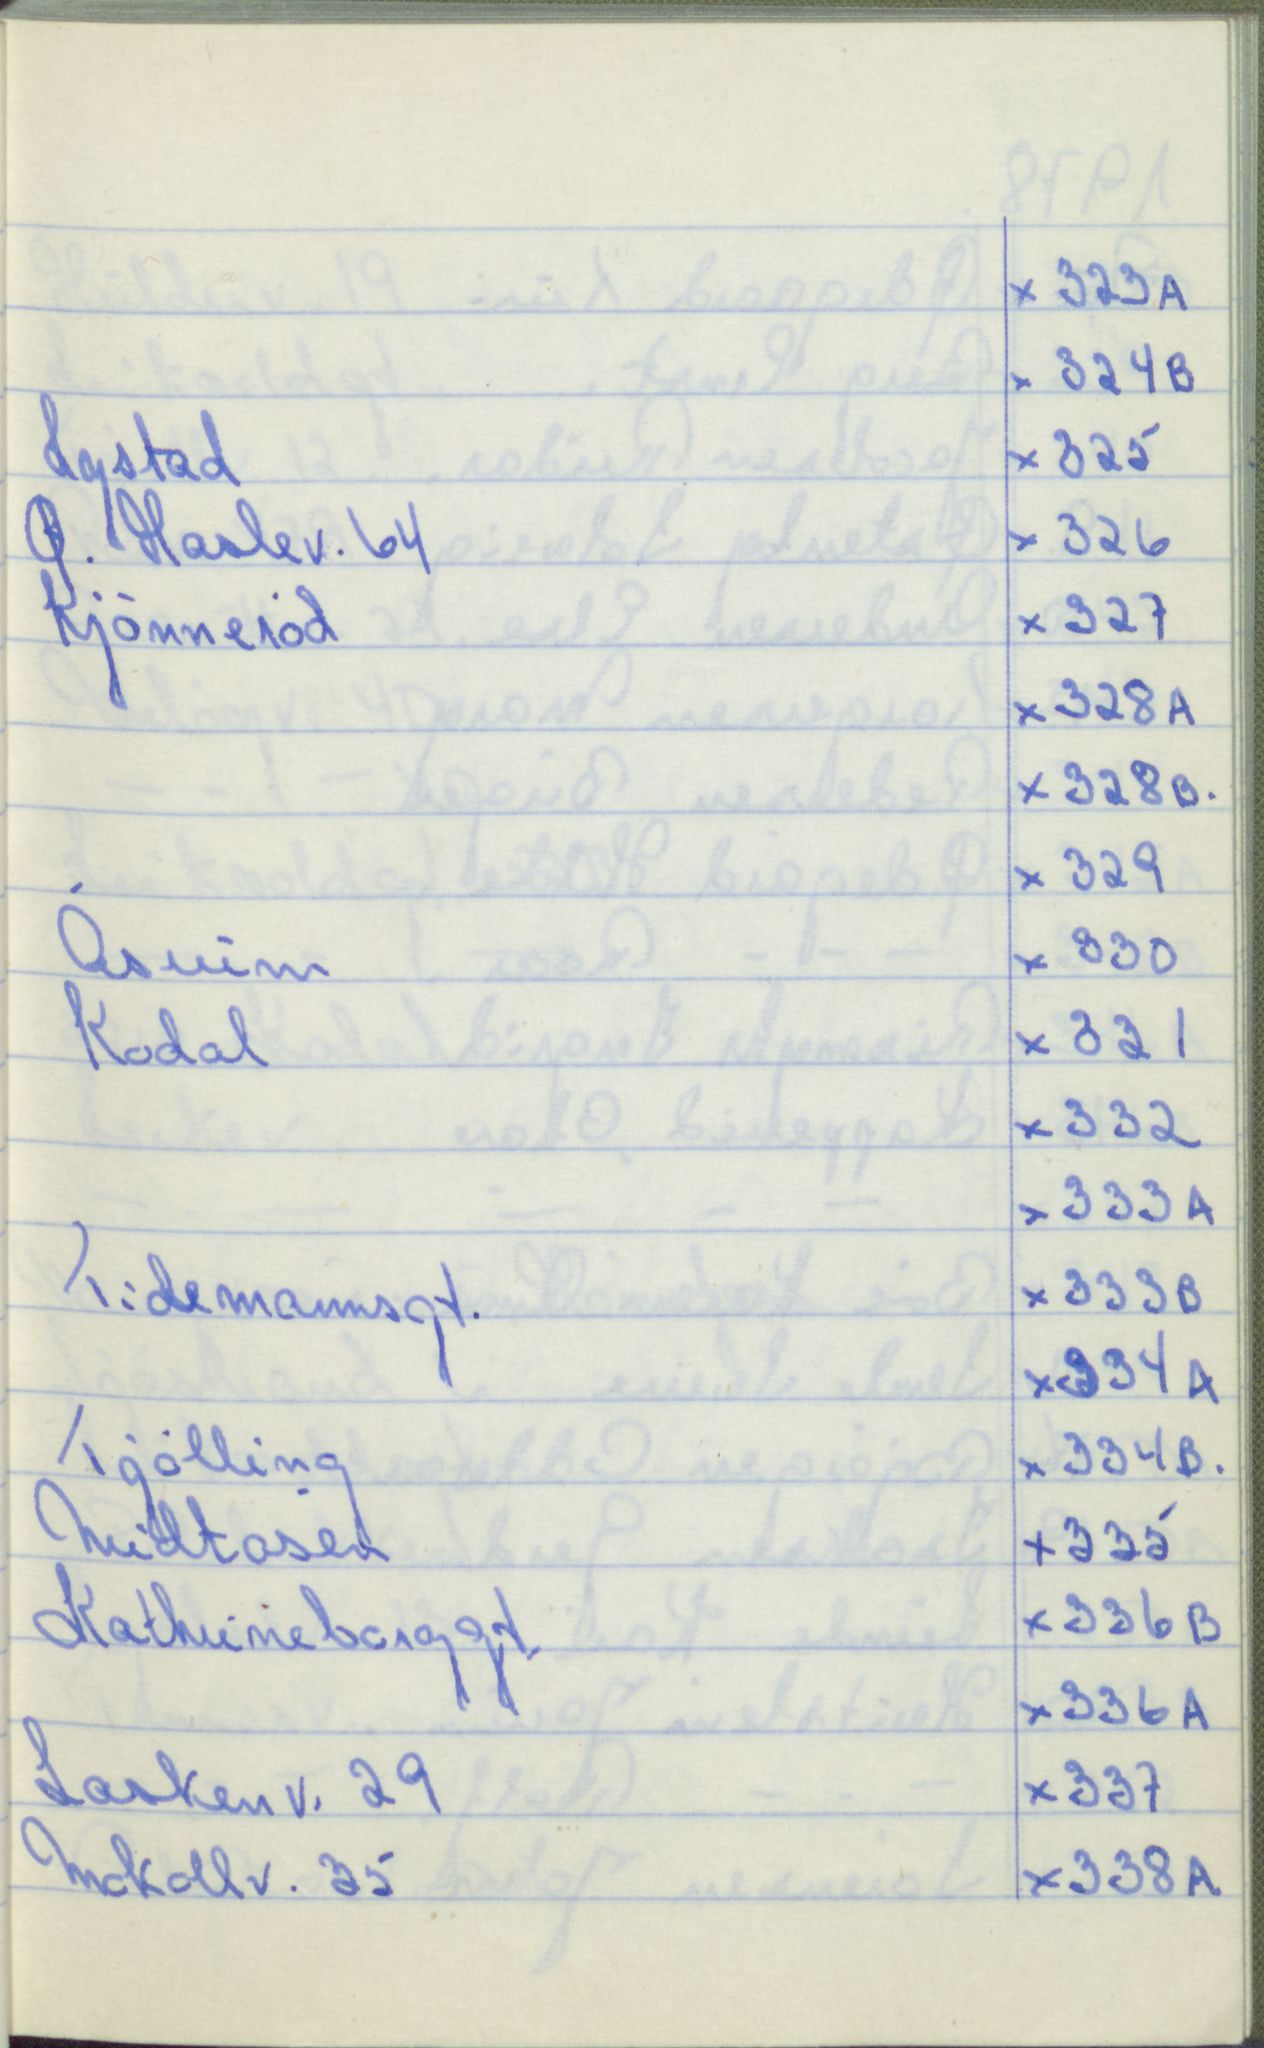 x 323A
x 324B
Lystad x 325
Ø. Haslev. 64 x 326
Kjönneröd x 327
x 328A
x 328B.
x 329
x 330
Kodal x 321
x 332
x 333A
Tidemannsgt. x 333B
x 334A
Tjölling x 334B.
Midtåsen x 335
Kathrineborggt. x 336B
x 336A
Laskenv. 29 x 337
Mokollv. 35 x 338A